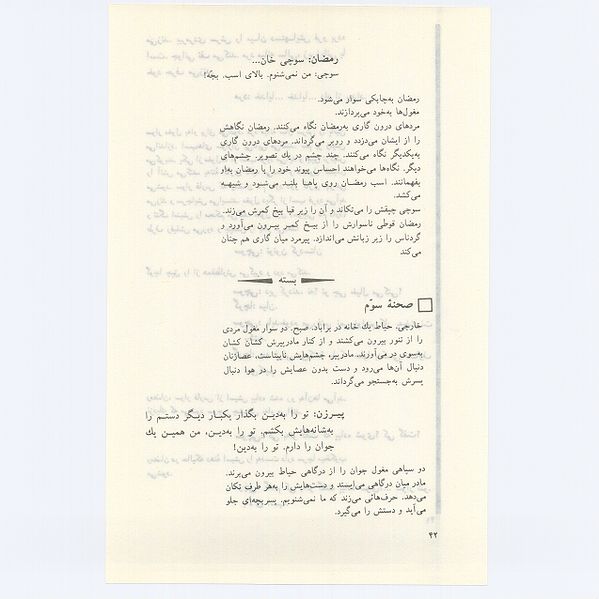 رمضان: سوچی خان...
سوچی: من نمی‌شنوم. بالای اسب. بچّه!
رمضان به‌چابکی سوار می‌شود.
مغول‌ها به‌خود می‌پردازند.
مردهای درون گاری به‌رمضان نگاه می‌کنند. رمضان نگاهش
را از ایشان می‌دزدد و روبر می‌گرداند. مردهای درون گاری
به‌یکدیگر نگاه می‌کنند. چند چشم در یك تصویر. چشم‌های
دیگر. نگاه‌ها می‌خواهند احساس پیوند خود را با رمضان به‌او
بفهمانند. اسب رمضان روی پاها بلند می‌شود و شیهه
می‌کشد.
سوچی چپقش را می‌تکاند و آن را زیر قبا بیخ کمرش می‌زند.
رمضان قوطی ناسوارش را از بیخ کمر بیرون می‌آورد و
گردناس را زیر زبانش می‌اندازد. پیرمرد میان گاری هم چنان
می‌کند
بسته
صحنهٔ سوّم
خارجی. حیاط یك خانه در براباد. صبح. دو سوار مغول مردی
را از تنور بیرون می‌کشند و از کنار مادرپیرش کشان کشان
به‌سوی در می‌آورند. مادرپیر، چشم‌هایش نابیناست، عصازنان
دنبال آن‌ها می‌رود و دست بدون عصایش را در هوا دنبال
پسرش به‌جستجو می‌گرداند.
پیرزن: تو را به‌دین بگذار یکبار دیگر دستم را
به‌شانه‌هایش بکشم. تو را به‌دین، من همین یك
جوان را دارم. تو را به‌دین!
دو سپاهی مغول جوان را از درگاهی حیاط بیرون می‌برند.
مادر میان درگاهی می‌ایستد و دست‌هایش را به‌هر طرف تکان
می‌دهد. حرف‌هائی می‌زند که ما نمی‌شنویم. پسربچه‌ای جلو
می‌آید و دستش را می‌گیرد.
۴۲